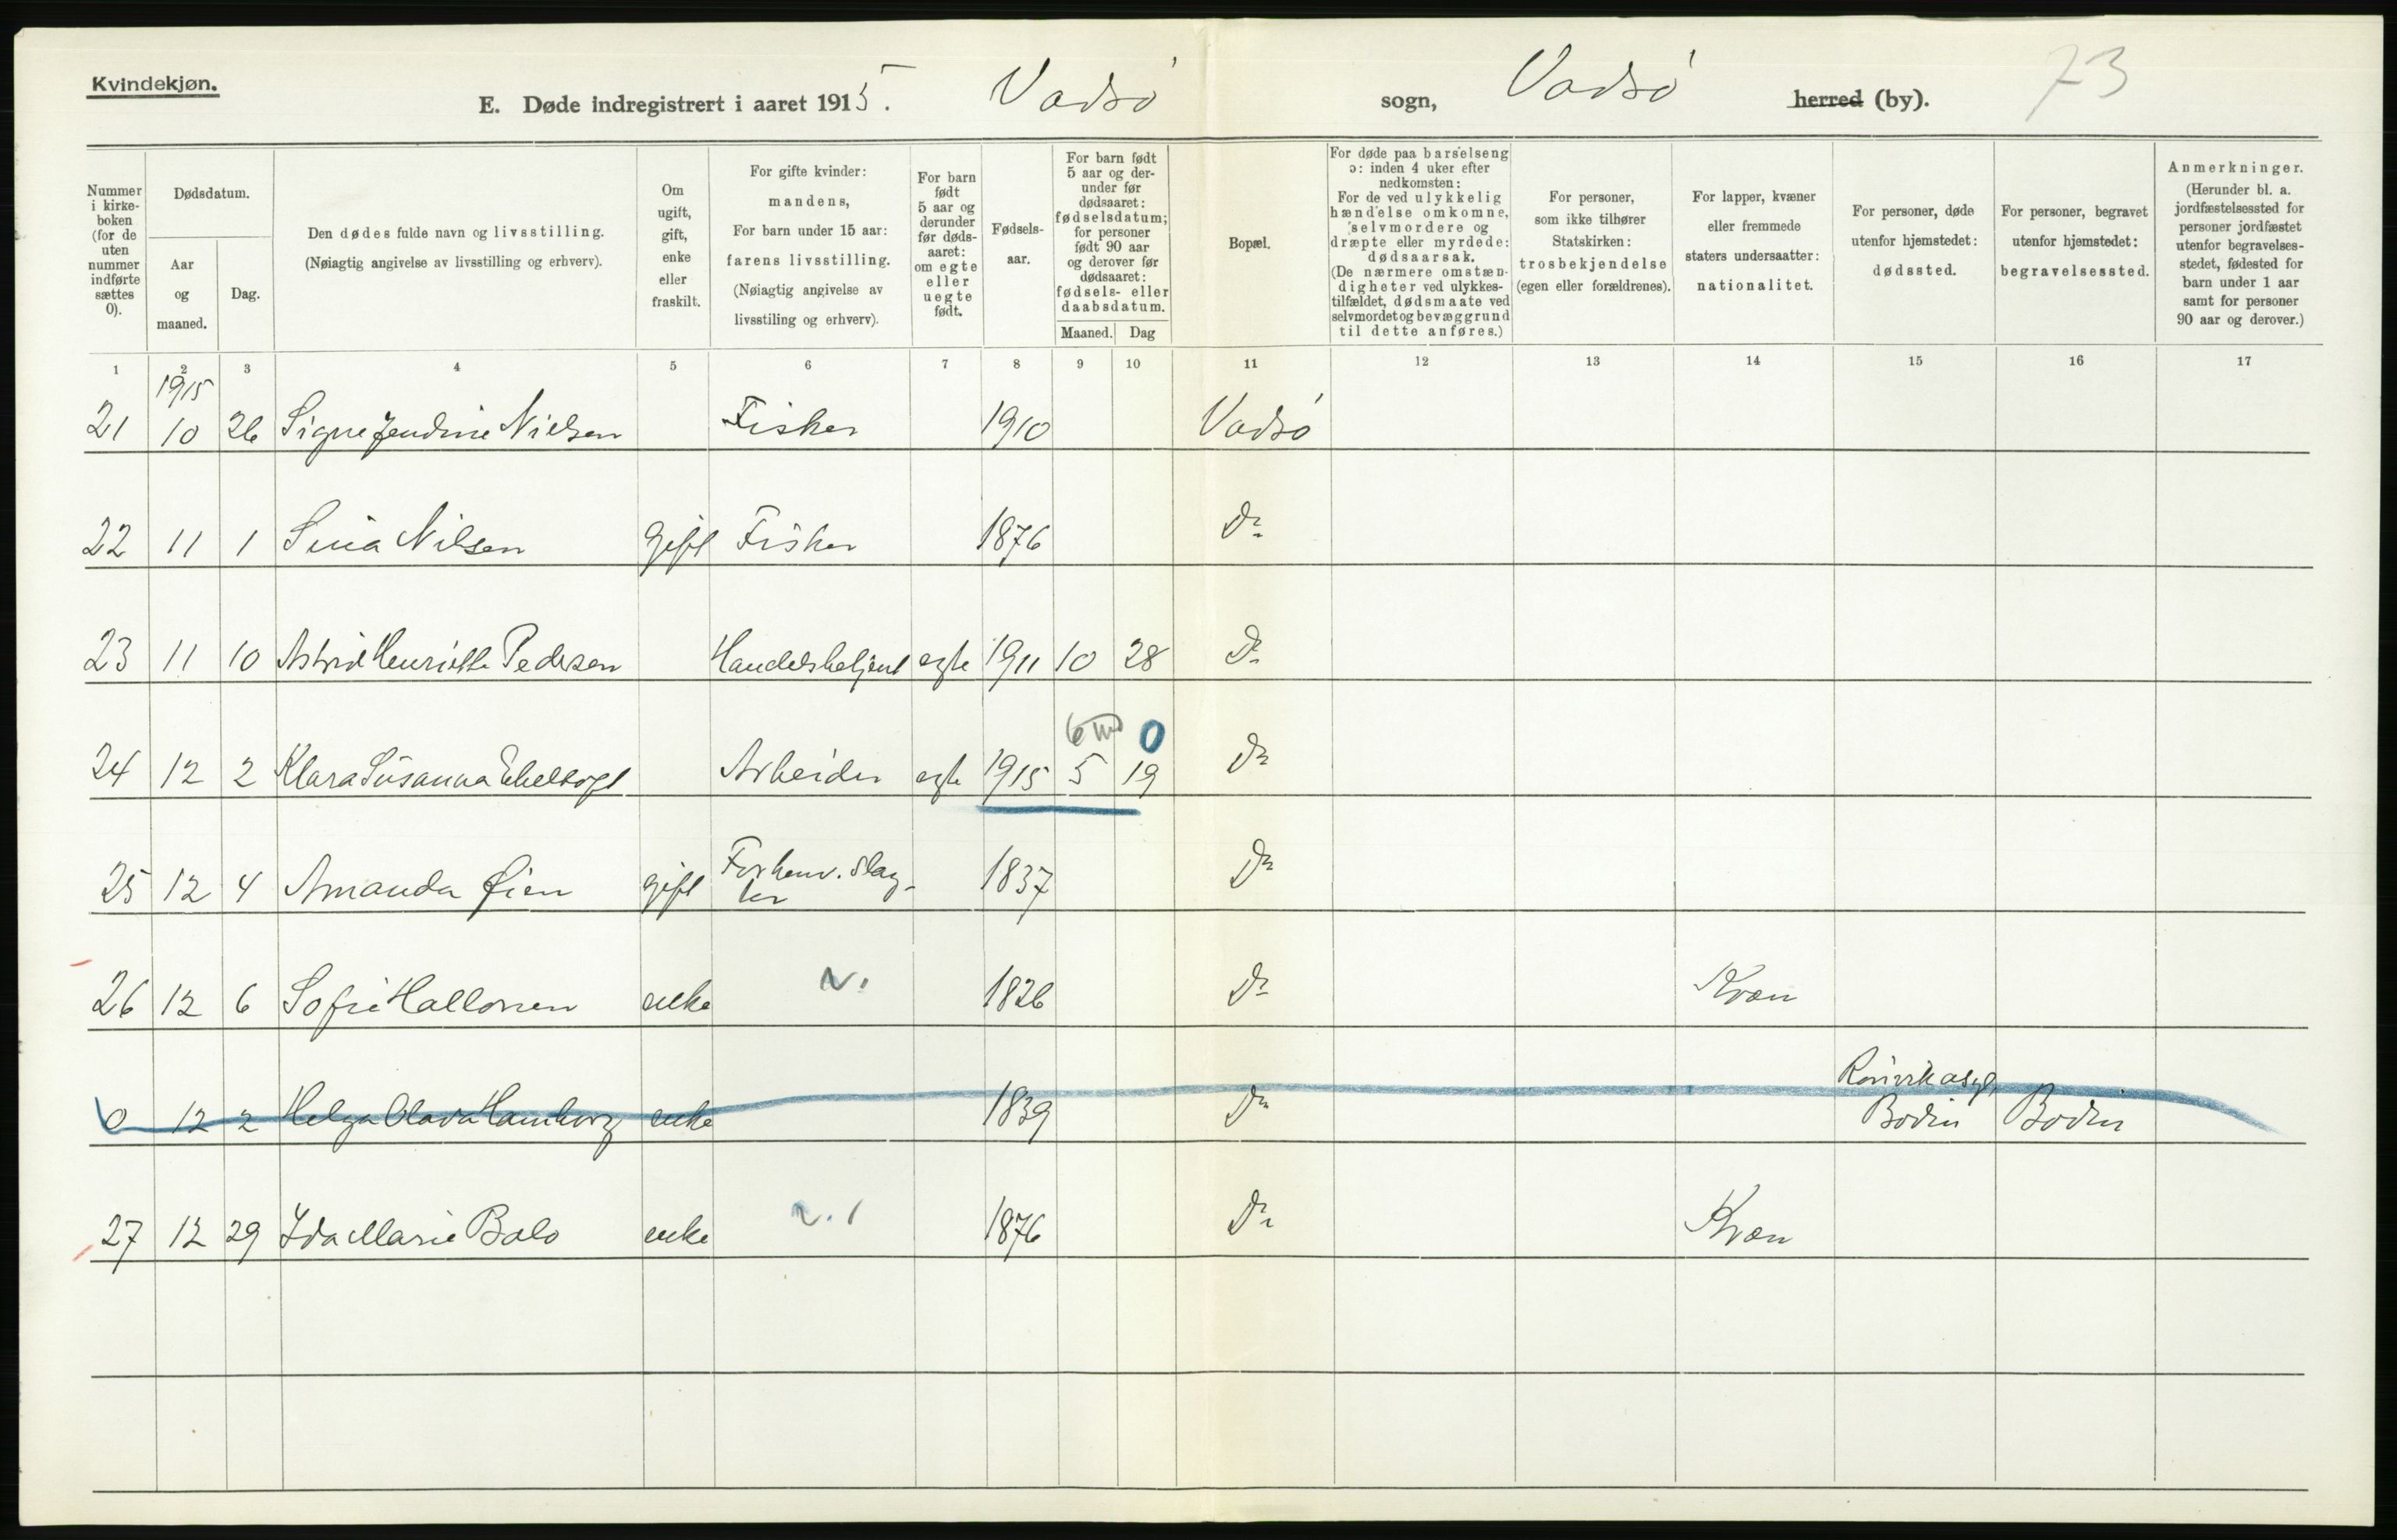 Kvindekjøn.
E. Døde indregistrert i aaret 1915. Vadsø sogn, Vadsø herred (by). 73
Nummer i kirke-boken (for de uten nummer indførte sættes 0).
Dødsdatum.
Aar og maaned.
Dag.
Den dødes fulde navn og livsstilling.
(Nøiagtig angivelse av livsstilling og erhverv).
Om ugift, gift, enke eller fraskilt.
For gifte kvinder: mandens,
For barn under 15 aar: farens livsstilling.
(Nøiagtig angivelse av livsstiling og erhverv).
For barn født 5 aar og derunder før døds-aaret: om egte eller uegte født.
Fødsels-aar.
For barn født 5 aar og der-under før dødsaaret: fødselsdatum; for personer født 90 aar og derover før dødsaaret: fødsels- eller daabsdatum.
Maaned. Dag
Bopæl.
For døde paa barselseng ɔ: inden 4 uker efter nedkomsten:
For de ved ulykkelig hændelse omkomne, selvmordere og dræpte eller myrdede: dødsaarsak.
(De nærmere omstæn-digheter ved ulykkes-tilfældet, dødsmaate ved selvmordet og bevæggrund til dette anføres.)
For personer, som ikke tilhører Statskirken: trosbekjendelse (egen eller forældrenes).
For lapper, kvæner eller fremmede staters undersaatter: nationalitet.
For personer, døde utenfor hjemstedet: dødssted.
For personer, begravet utenfor hjemstedet: begravelsessted.
Anmerkninger.
(Herunder bl. a. jordfæstelsessted for personer jordfæstet utenfor begravelses-stedet, fødested for barn under 1 aar samt for personer 90 aar og derover.)
1 2 3 4 5 6 7 8 9 10 11 12 13 14 15 16 17
1915
21 10 26 Signe Jendine Nielsen Fisker 1910 Vadsø
22 11 1 Sina Nilsen gift Fisker 1876 Do
23 11 10 Astrid Henriette Pedersen Handelsbetjent egte 1911 10 28 Do
6 md 0
24 12 2 Klara Susanna Arbeider egte 1915 5 19 Do
25 12 4 Amanda Øien gift Forhenv. slag-
ter 1837 Do
26 12 6 Sofie Hallonen enke N. 1826 Do Kvæn
Rønvik asyl,
0 12 2 Helga Olava Hamborg enke 1839 Do Bodin Bodin
27 12 29 Ida Marie Balo enke N. 1 1876 Do Kvæn